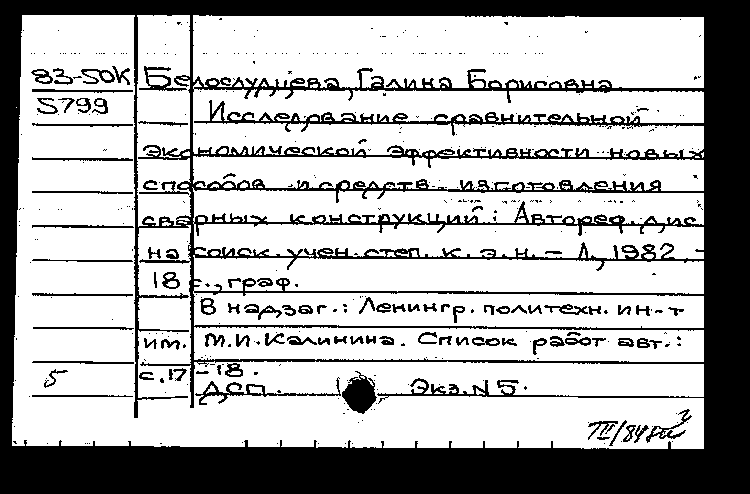 83-50К Белослудцева, Галина Борисовна.
5799 Исследование сравнительной
экономической эффективности новых
способов и средств изготовления
сварных конструкций: Автореф. дис
на соиск. учен. степ. к. э. н. – Л., 1982. –
18 с., граф.
В надзаг.: Ленингр. политехн. ин-т
им. М.И. Калинина. Список работ авт.:
5 с. 17-18.
ДСП. Экз. N 5.